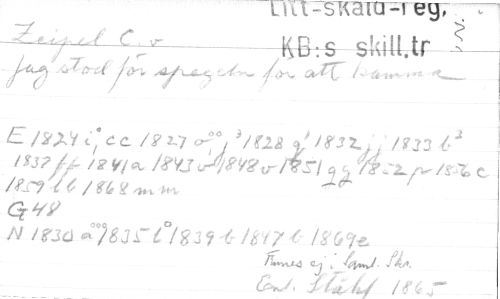 Litt-skald-reg.
KB:s skill.tr
Zeipel C. v
Jag stod för spegeln för att kamma
E 1824 i, cc 1827 j³ 1828 q 1832 jj 1833 b²
1837 ff 1841 a 1843 v 1848 v 1851 gg 1852 p 1856 c
1859 bb 1868 mm
G 48
N 1830 å 1835 b 1839 b 1847 b 1869 e
Finnes ej i Saml. Skr.
Enl. Ståhl 1865